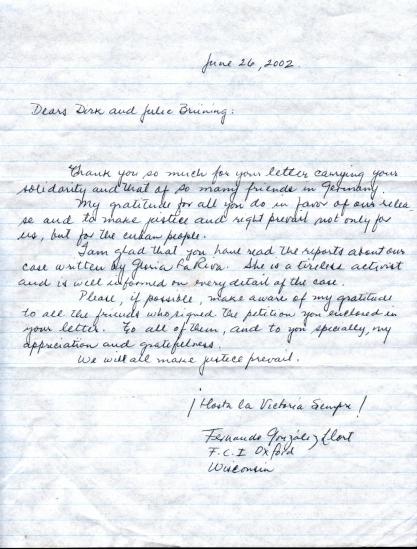 June 26, 2002.
Dears Dirk and Julie Brüning:
Thank you so much for your letter carrying your
solidarity and that of so many friends in Germany.
My gratitude for all you do in favor of our relea
se and to make justice and right prevail not only for
us, but for the cuban people.
I am glad that you have read the reports about our
case written by Gloria La Riva. She is a tireless activist
and is well informed on every detail of the case.
Please, if possible, make aware of my gratitude
to all the friends who signed the petition you enclosed in
your letter. To all of them, and to you specially, my
appreciation and gratefulness.
We will all make justice prevail.
¡Hasta la Victoria Siempre!
Fernando González Llort
F.C.I Oxford
Wisconsin